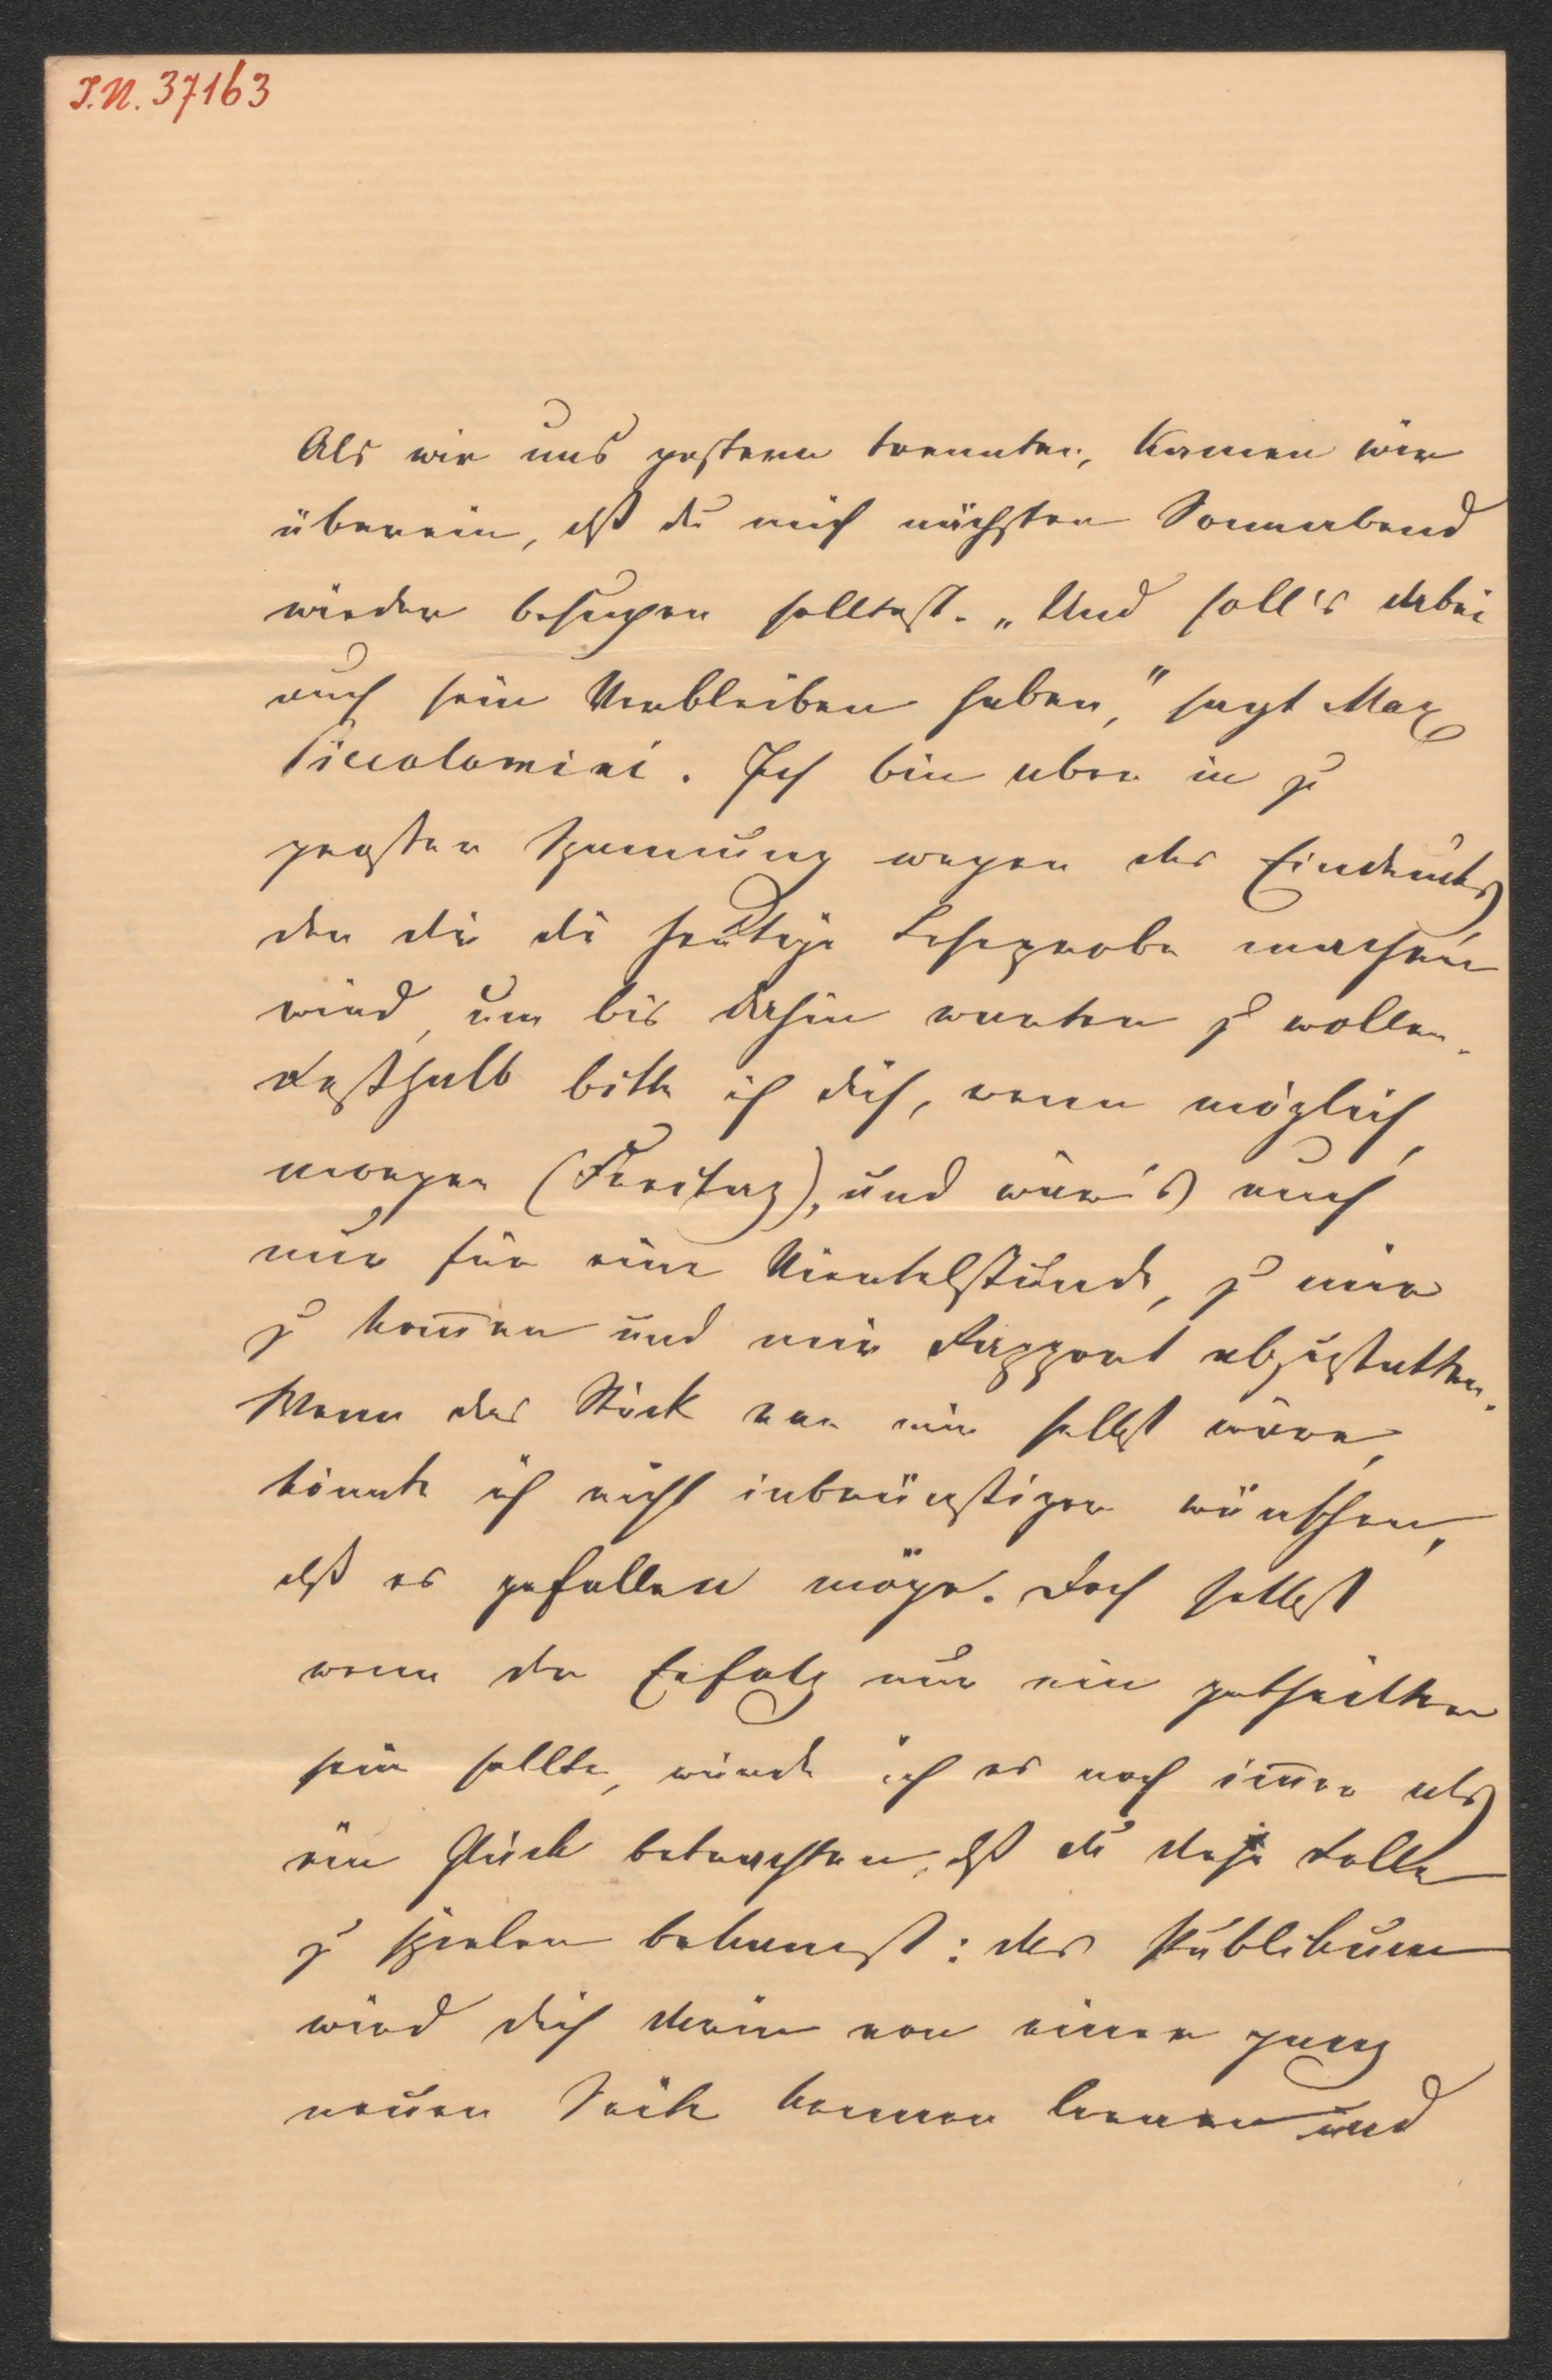 I.N. 37163
Als wir uns gestern trennten, kamen wir
überein, dß du mich nächsten Sonnabend
wieder besuchen solltest. „Und soll's dabei
auch sein Verbleiben haben," sagt Max
Piccolomini. Ich bin aber in zu
großer Spannung wegen des Eindrucks,
den dir die heutige Leseprobe machen
wird, um bis dahin warten zu wollen.
Deßhalb bitte ich dich, wenn möglich,
morgen (Freitag), und wär's auch
nur für eine Viertelstunde, zu mir
zu kom̄en und mir Rapport abzustatten.
Wenn das Stück von mir selbst wäre,
könnte ich nicht inbrünstiger wünschen,
dß es gefallen möge. Doch selbst
wenn der Erfolg nur ein getheilter
sein sollte, würde ich es noch im̄er als
ein Glück betrachten, dß du diese Rolle
zu spielen bekamest: das Publikum
wird dich darin von einer ganz
neuen Seite kennen lernen und